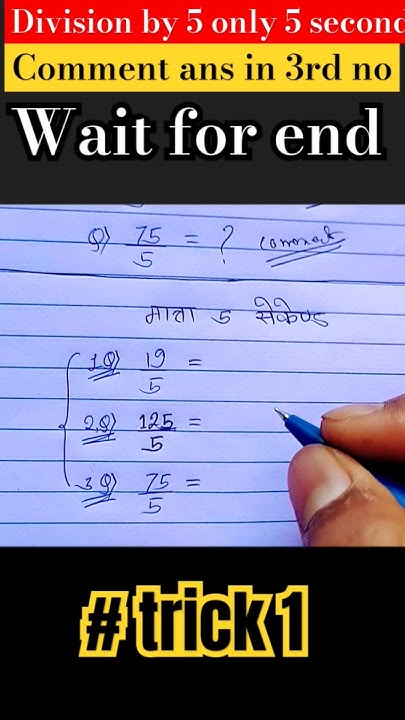 Division by 5 only 5 second
Comment ans in 3rd no
Wait for end
Q) 75/5 = ? comment
मात्रा 5 सेकेण्ड
1Q) 19/5 =
2Q) 125/5 =
3Q) 75/5 =
# trick 1